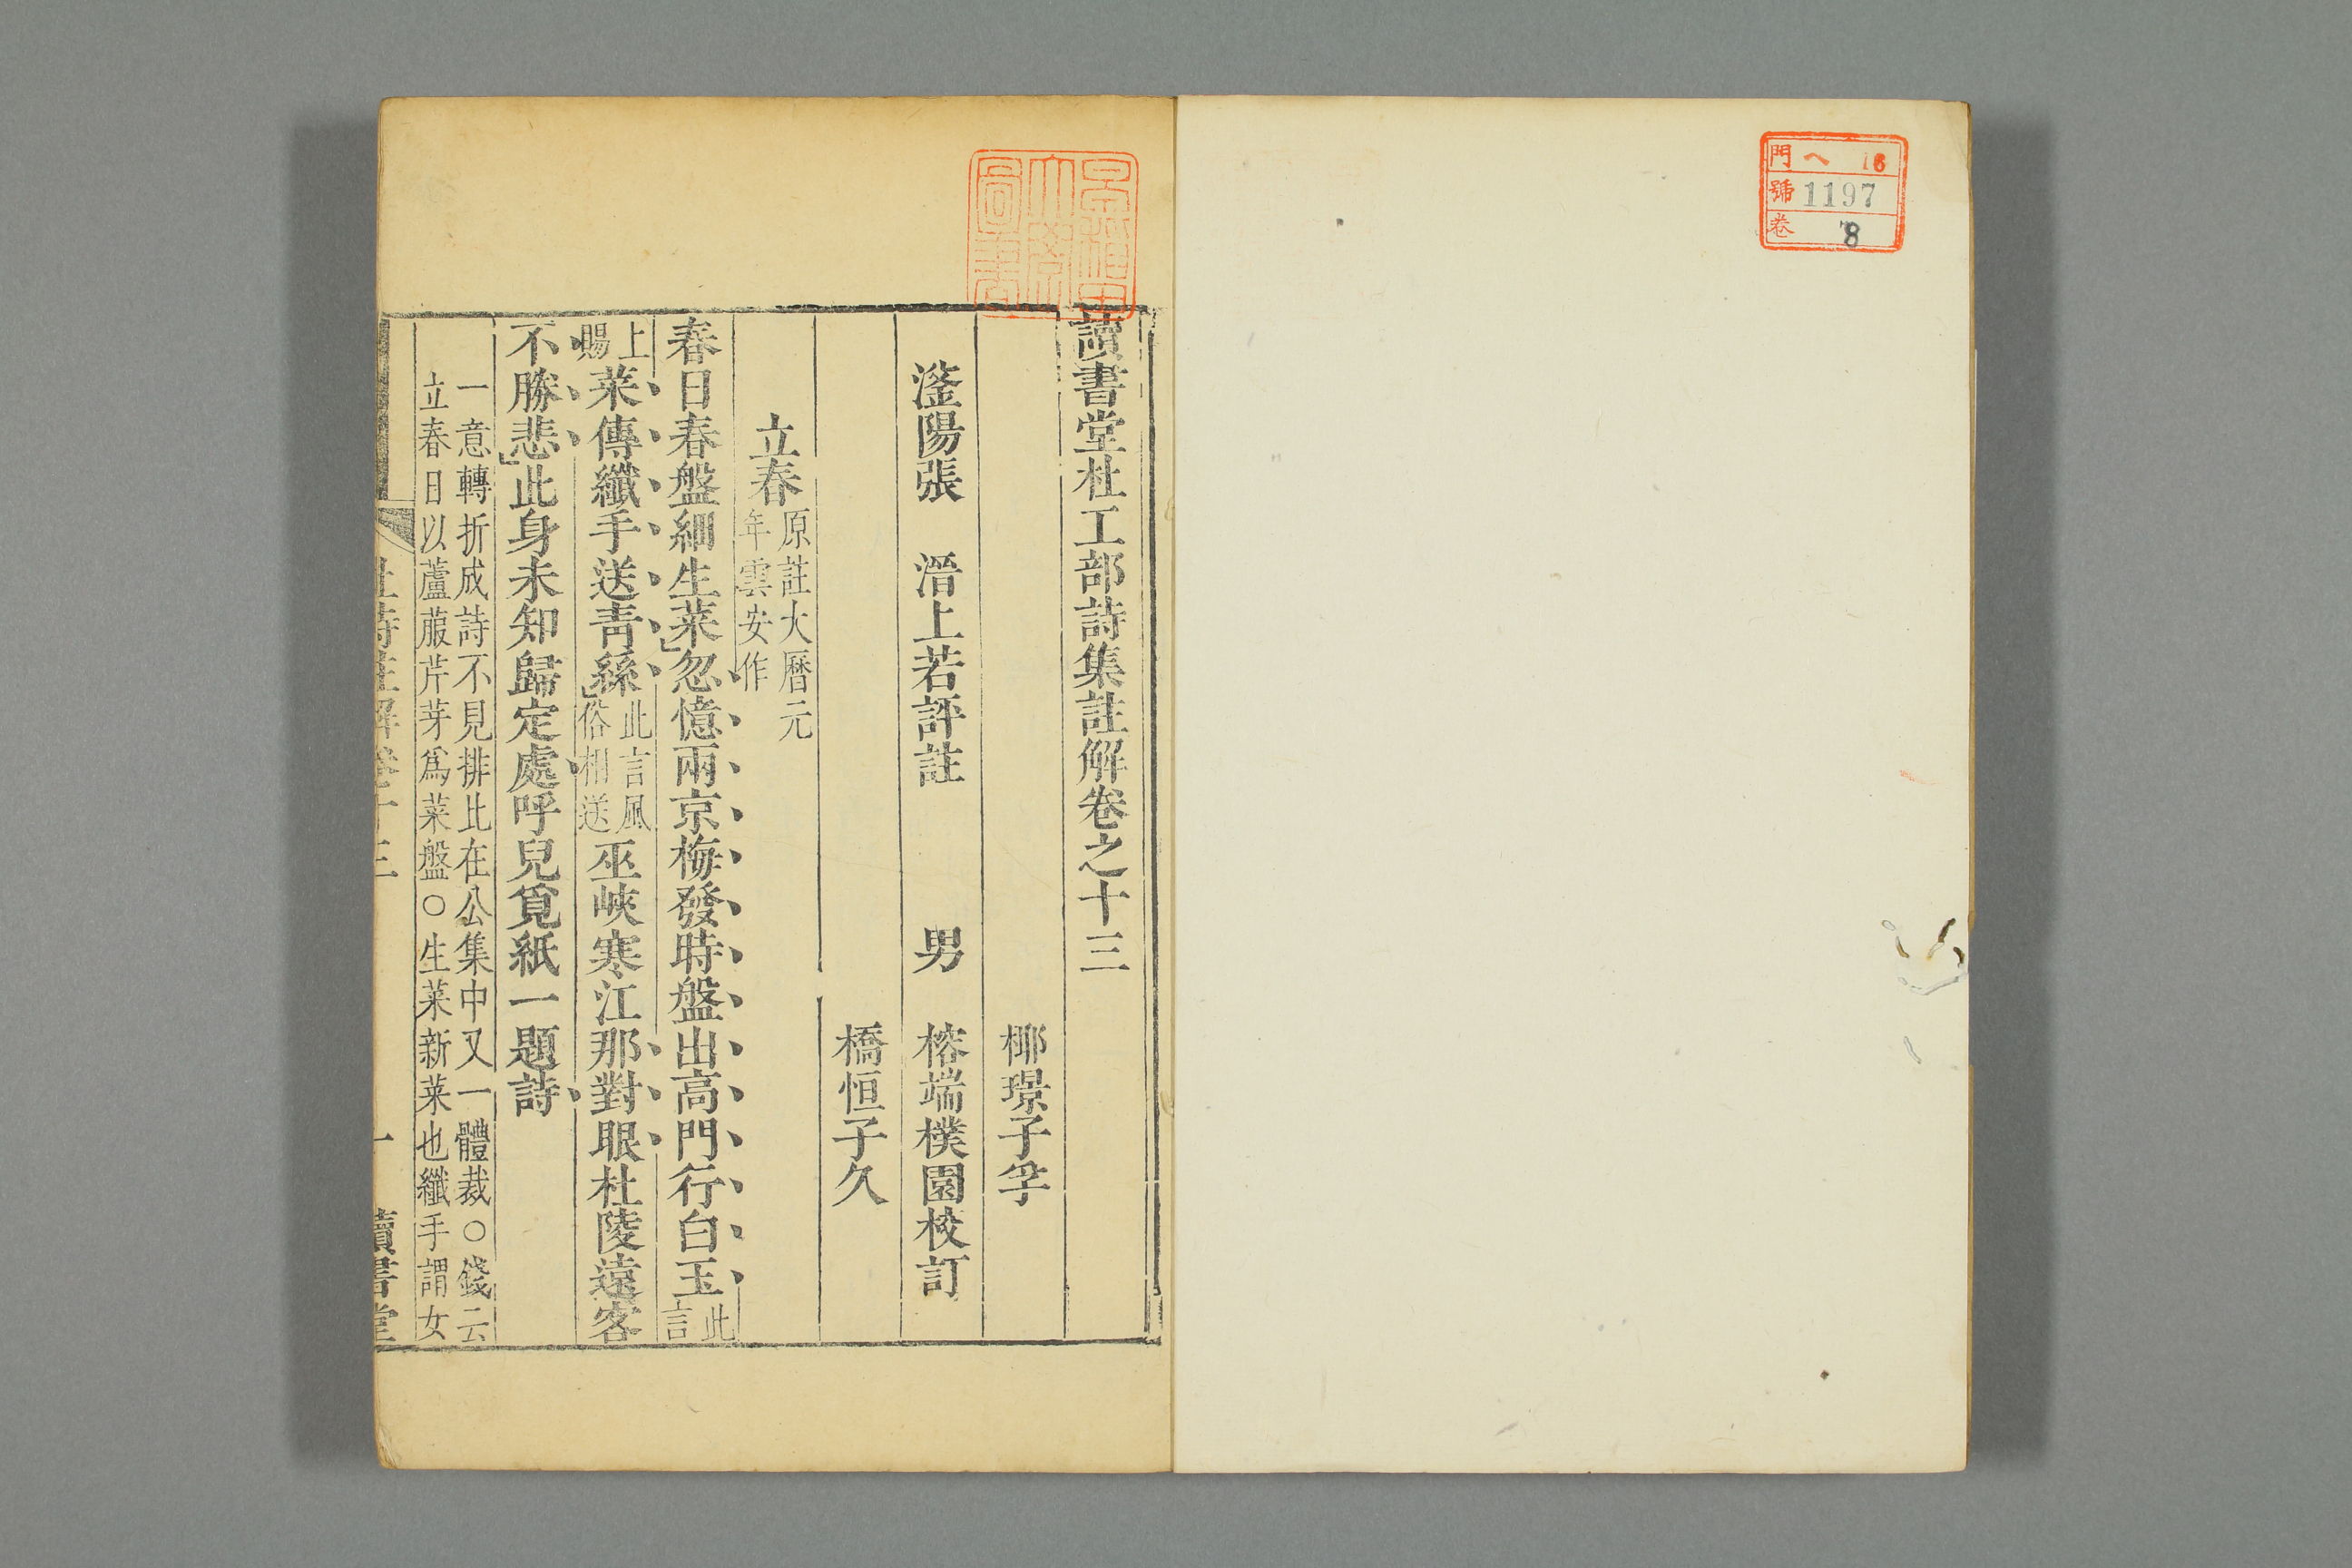 門 ヘ 16
號 1197
卷 8
讀書堂杜工部詩集註解卷之十三
椰璟子孚
滏陽張 溍上若評註 男 榕端樸園校訂
橋恒子久
立春 原註大曆元
年雲安作
春日春盤細生菜忽憶兩京梅發時盤出高門行白玉 此
言
上
賜 菜傳纖手送青絲 此言風
俗相送 巫峽寒江那對眼杜陵遠客
不勝悲此身未知歸定處呼兒覓紙一題詩
一意轉折成詩不見排比在公集中又一體裁○錢云
立春日以蘆菔芹芽爲菜盤○生菜新菜也纖手謂女
杜詩註解卷十三 一 讀書堂